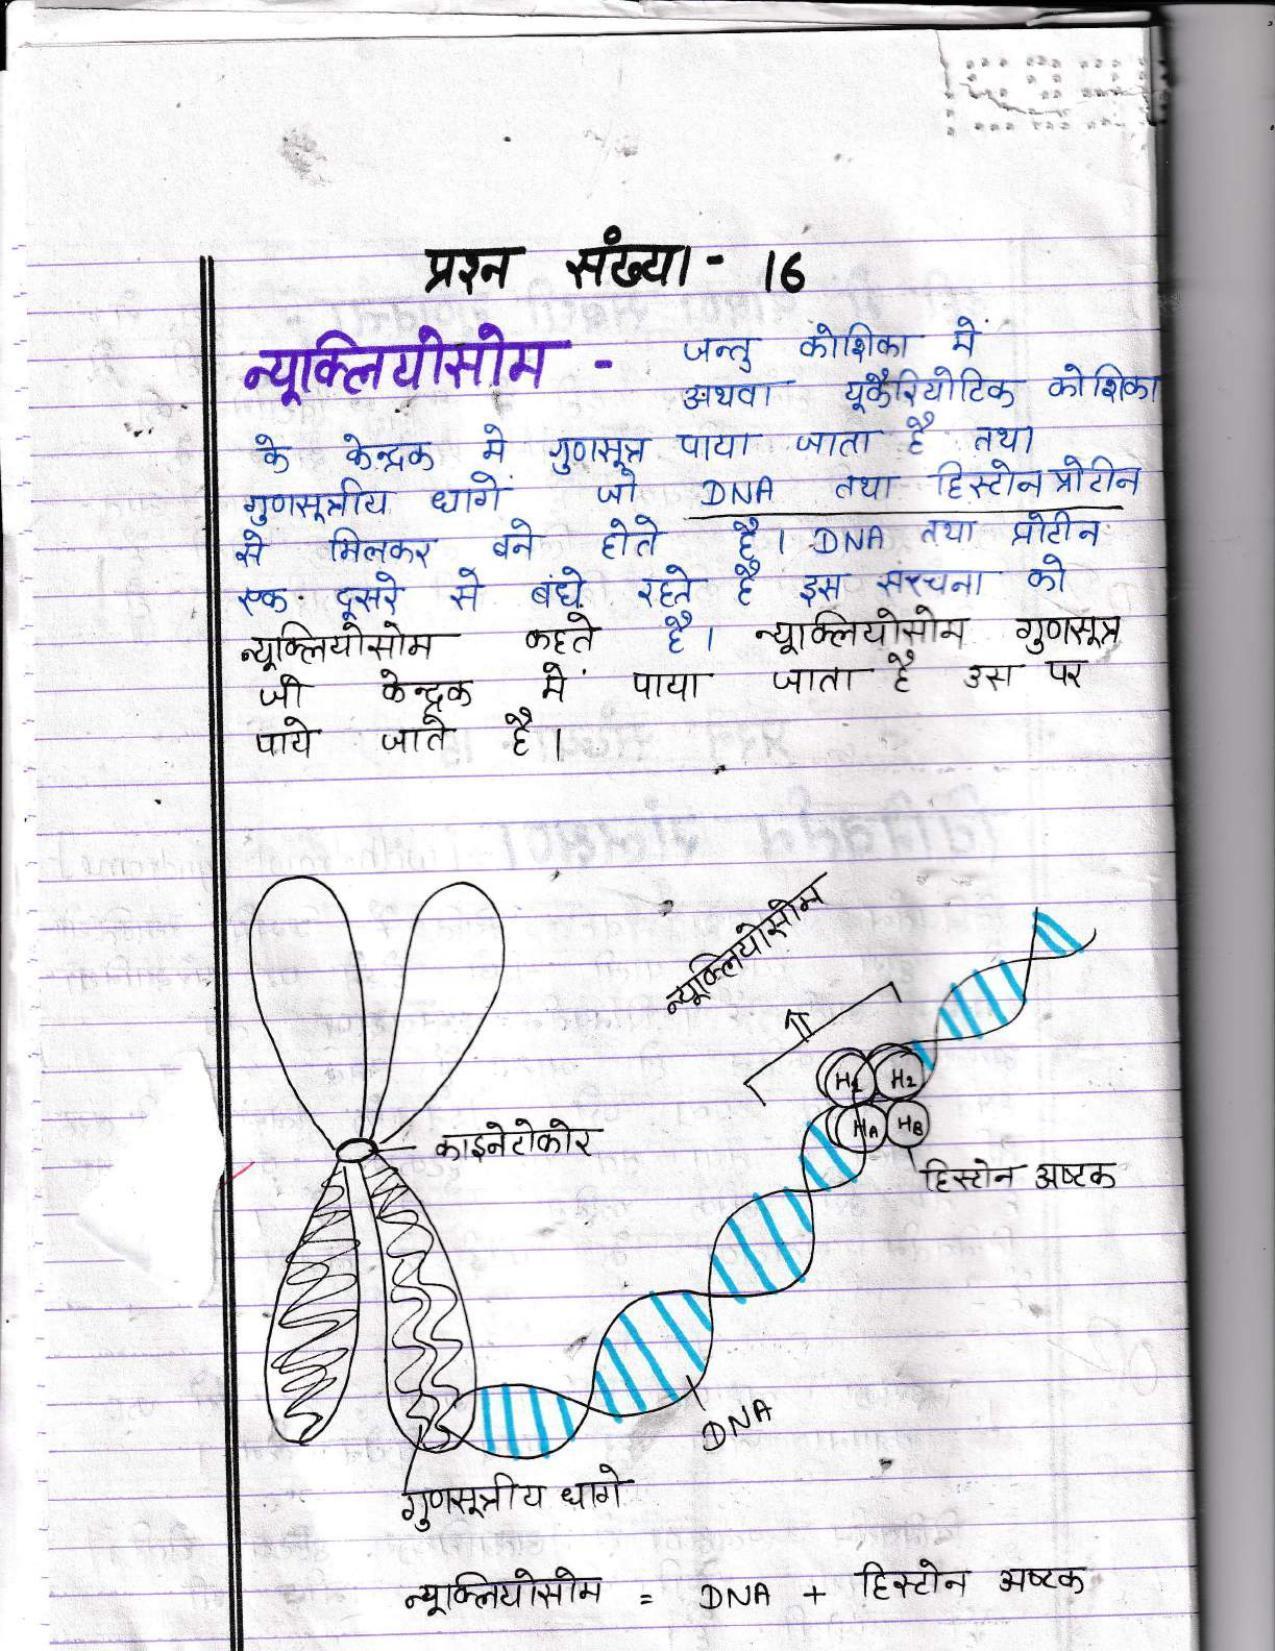 प्रश्न संख्या - 16
न्यूक्लियोसोम - जन्तु कोशिका में
अथवा यूकैरियोटिक कोशिका
के केन्द्रक मे गुणसूत्र पाया जाता है तथा
गुणसूत्रीय धागें जो DNA तथा हिस्टोन प्रोटीन
से मिलकर बने होते है। DNA तथा प्रोटीन
एक दूसरे से बंधे रहते है इस संरचना को
न्यूक्लियोसोम कहते है। न्यूक्लियोसोम गुणसूत्र
जी केन्द्रक में पाया जाता है उस पर
पाये जाते है।
न्यूक्लियोसोम
H2
HA HB
काइनेटोकोर
हिस्टोन अष्टक
DNA
गुणसूत्रीय धागे
न्यूक्लियोसोम = DNA + हिस्टोन अष्टक